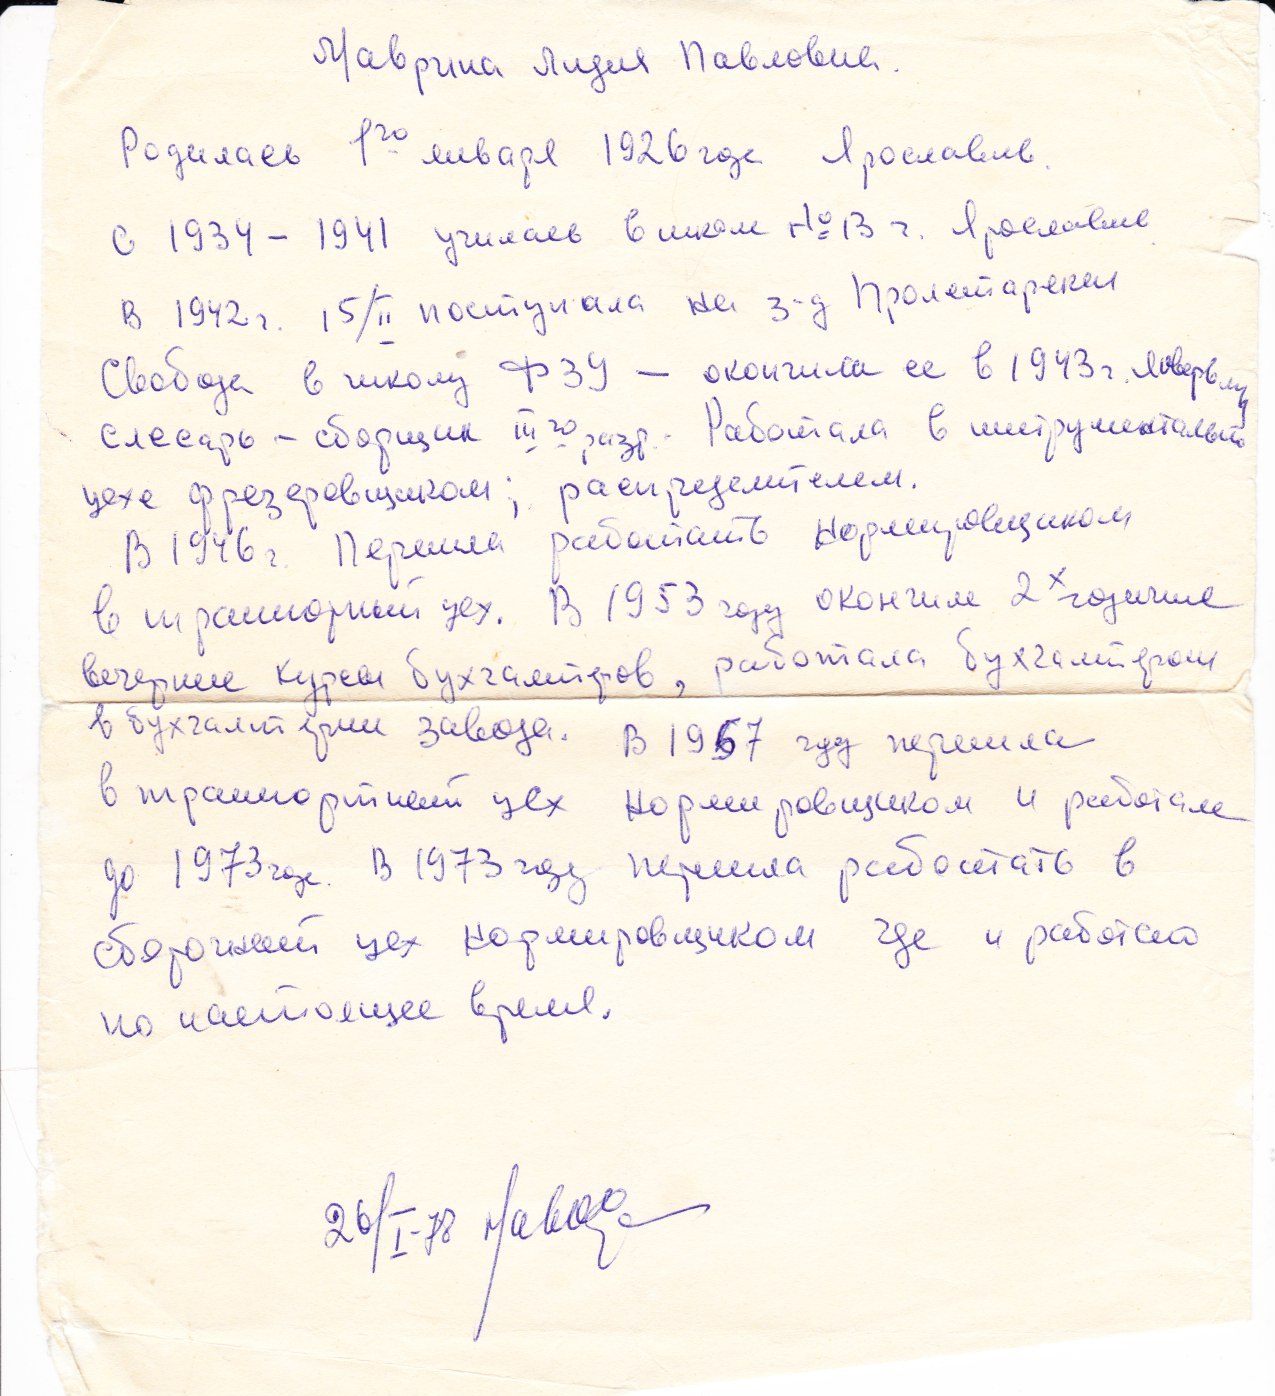 Маврина Лидия Павловна.
Родилась 1го января 1926 года Ярославле.
С 1934 – 1941 училась в школе № 13 г. Ярославле
В 1942 г. 15/II поступила на з-д Пролетарская
Свобода в школу ФЗУ – окончила ее в 1943 г.
слесарь – сборщик III го разр. Работала в инструментальном
цехе фрезеровщиком; распределителем.
В 1946 г. Перешла работать нормировщиком
в транспортный цех. В 1953 году окончила 2х годичные
вечерние курсы бухгалтеров, работала бухгалтером
в бухгалтерии завода. В 1967 году перешла
в транспортный цех нормировщиком и работала
до 1973 года. В 1973 году перешла работать в
сборочный цех нормировщиком где и работаю
по настоящее время.
26/I-78